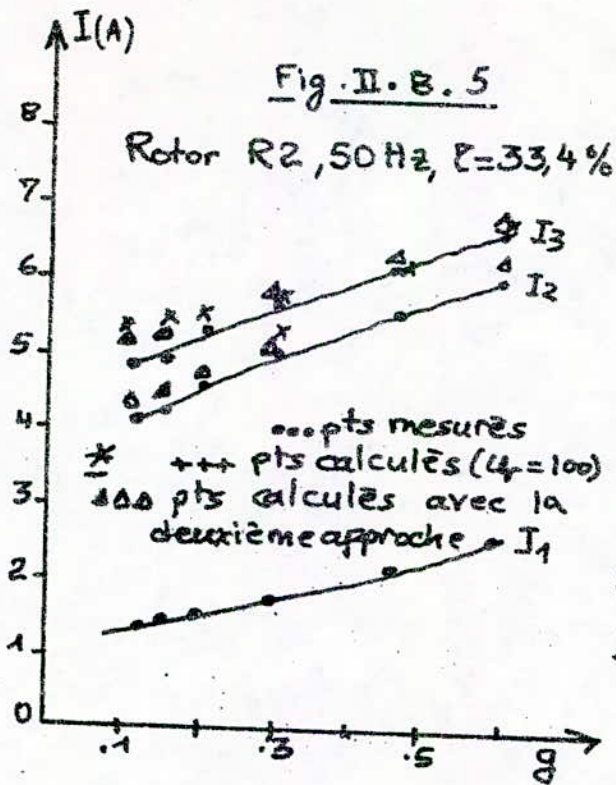 I(A)
Fig. II. B. 5
Rotor R2, 50 Hz, ξ=33,4%
8
7
6
5
4
3
2
1
0
I3
I2
••• pts mesurés
* +++ pts calculés (μr=100)
ΔΔΔ pts calculés avec la
deuxième approche
I1
.1
.3
.5
g